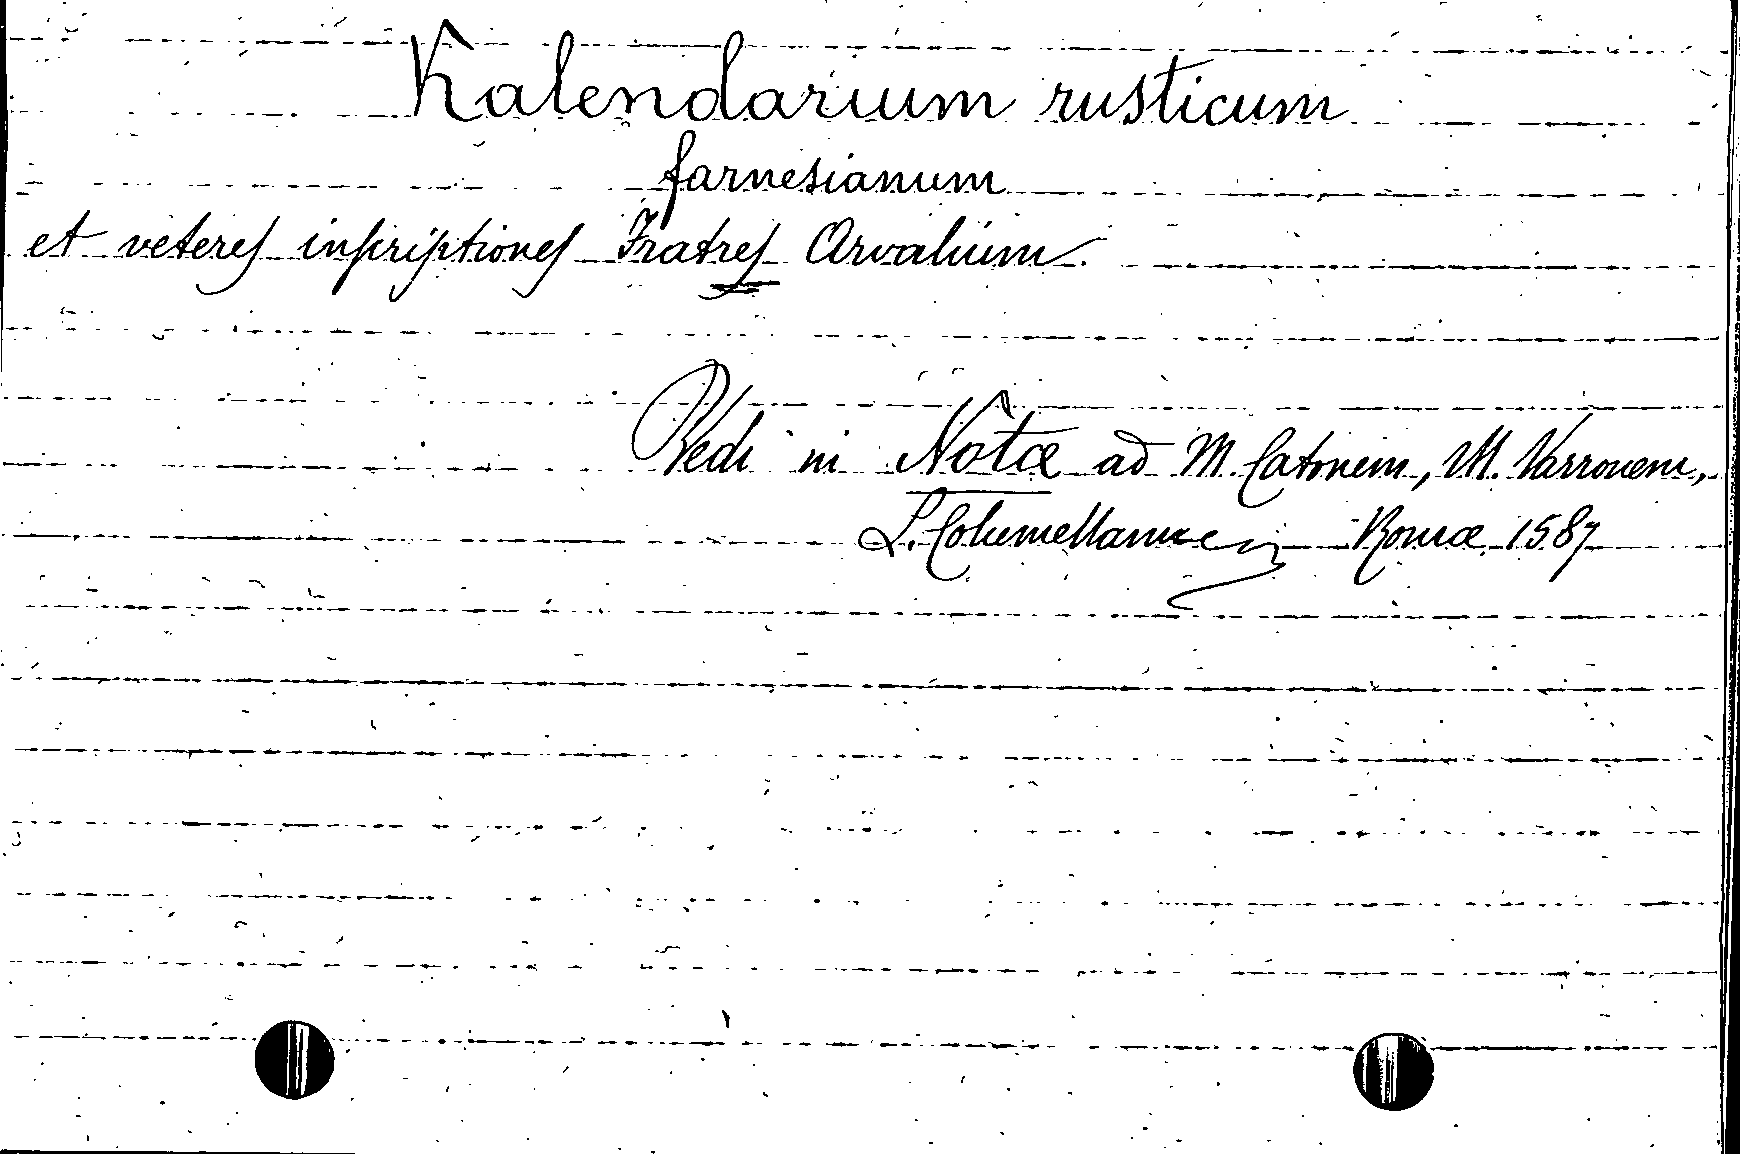 Kalendarium rusticum
farnesianum
et veteres inscriptiones Fratres Arvalium.
Vedi in Notæ ad M. Catonem, M. Varronem,
L. Columellam Romæ 1587